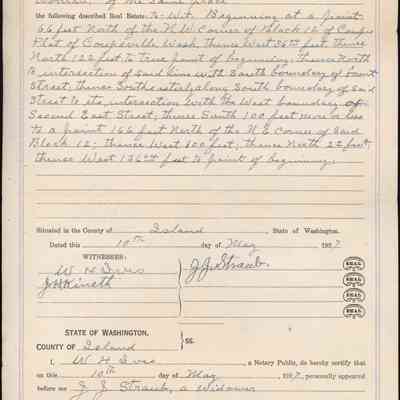 of the same place
the following described Real Estate: To-Wit: Beginning at a point
66 feet North of the N.W Corner of Block 12 of Coupes
Plat of Coupeville Wash, thence West 36 feet thence
North 122 feet to true point of beginning; thence North
to intersection of said line with South boundary of Front
Street, thence Southeasterly along South boundary of said
Street to its intersection with the West boundary of
Second East Street, thence South 100 feet more or less
to a point 166 feet North of the N.E Corner of said
Block 12; thence West 100 feet, thence North 22 feet,
thence West 136 feet to point of beginning.
Situated in the County of Island, State of Washington.
Dated this 10th day of May 1927
WITNESSES:
W H Ives
J J Straub.
SEAL
SEAL
SEAL
SEAL
STATE OF WASHINGTON,
COUNTY OF Island
SS.
I, W H Ives, a Notary Public, do hereby certify that
on this 10th day of May, 1927, personally appeared
before me J J Straub, a Widower